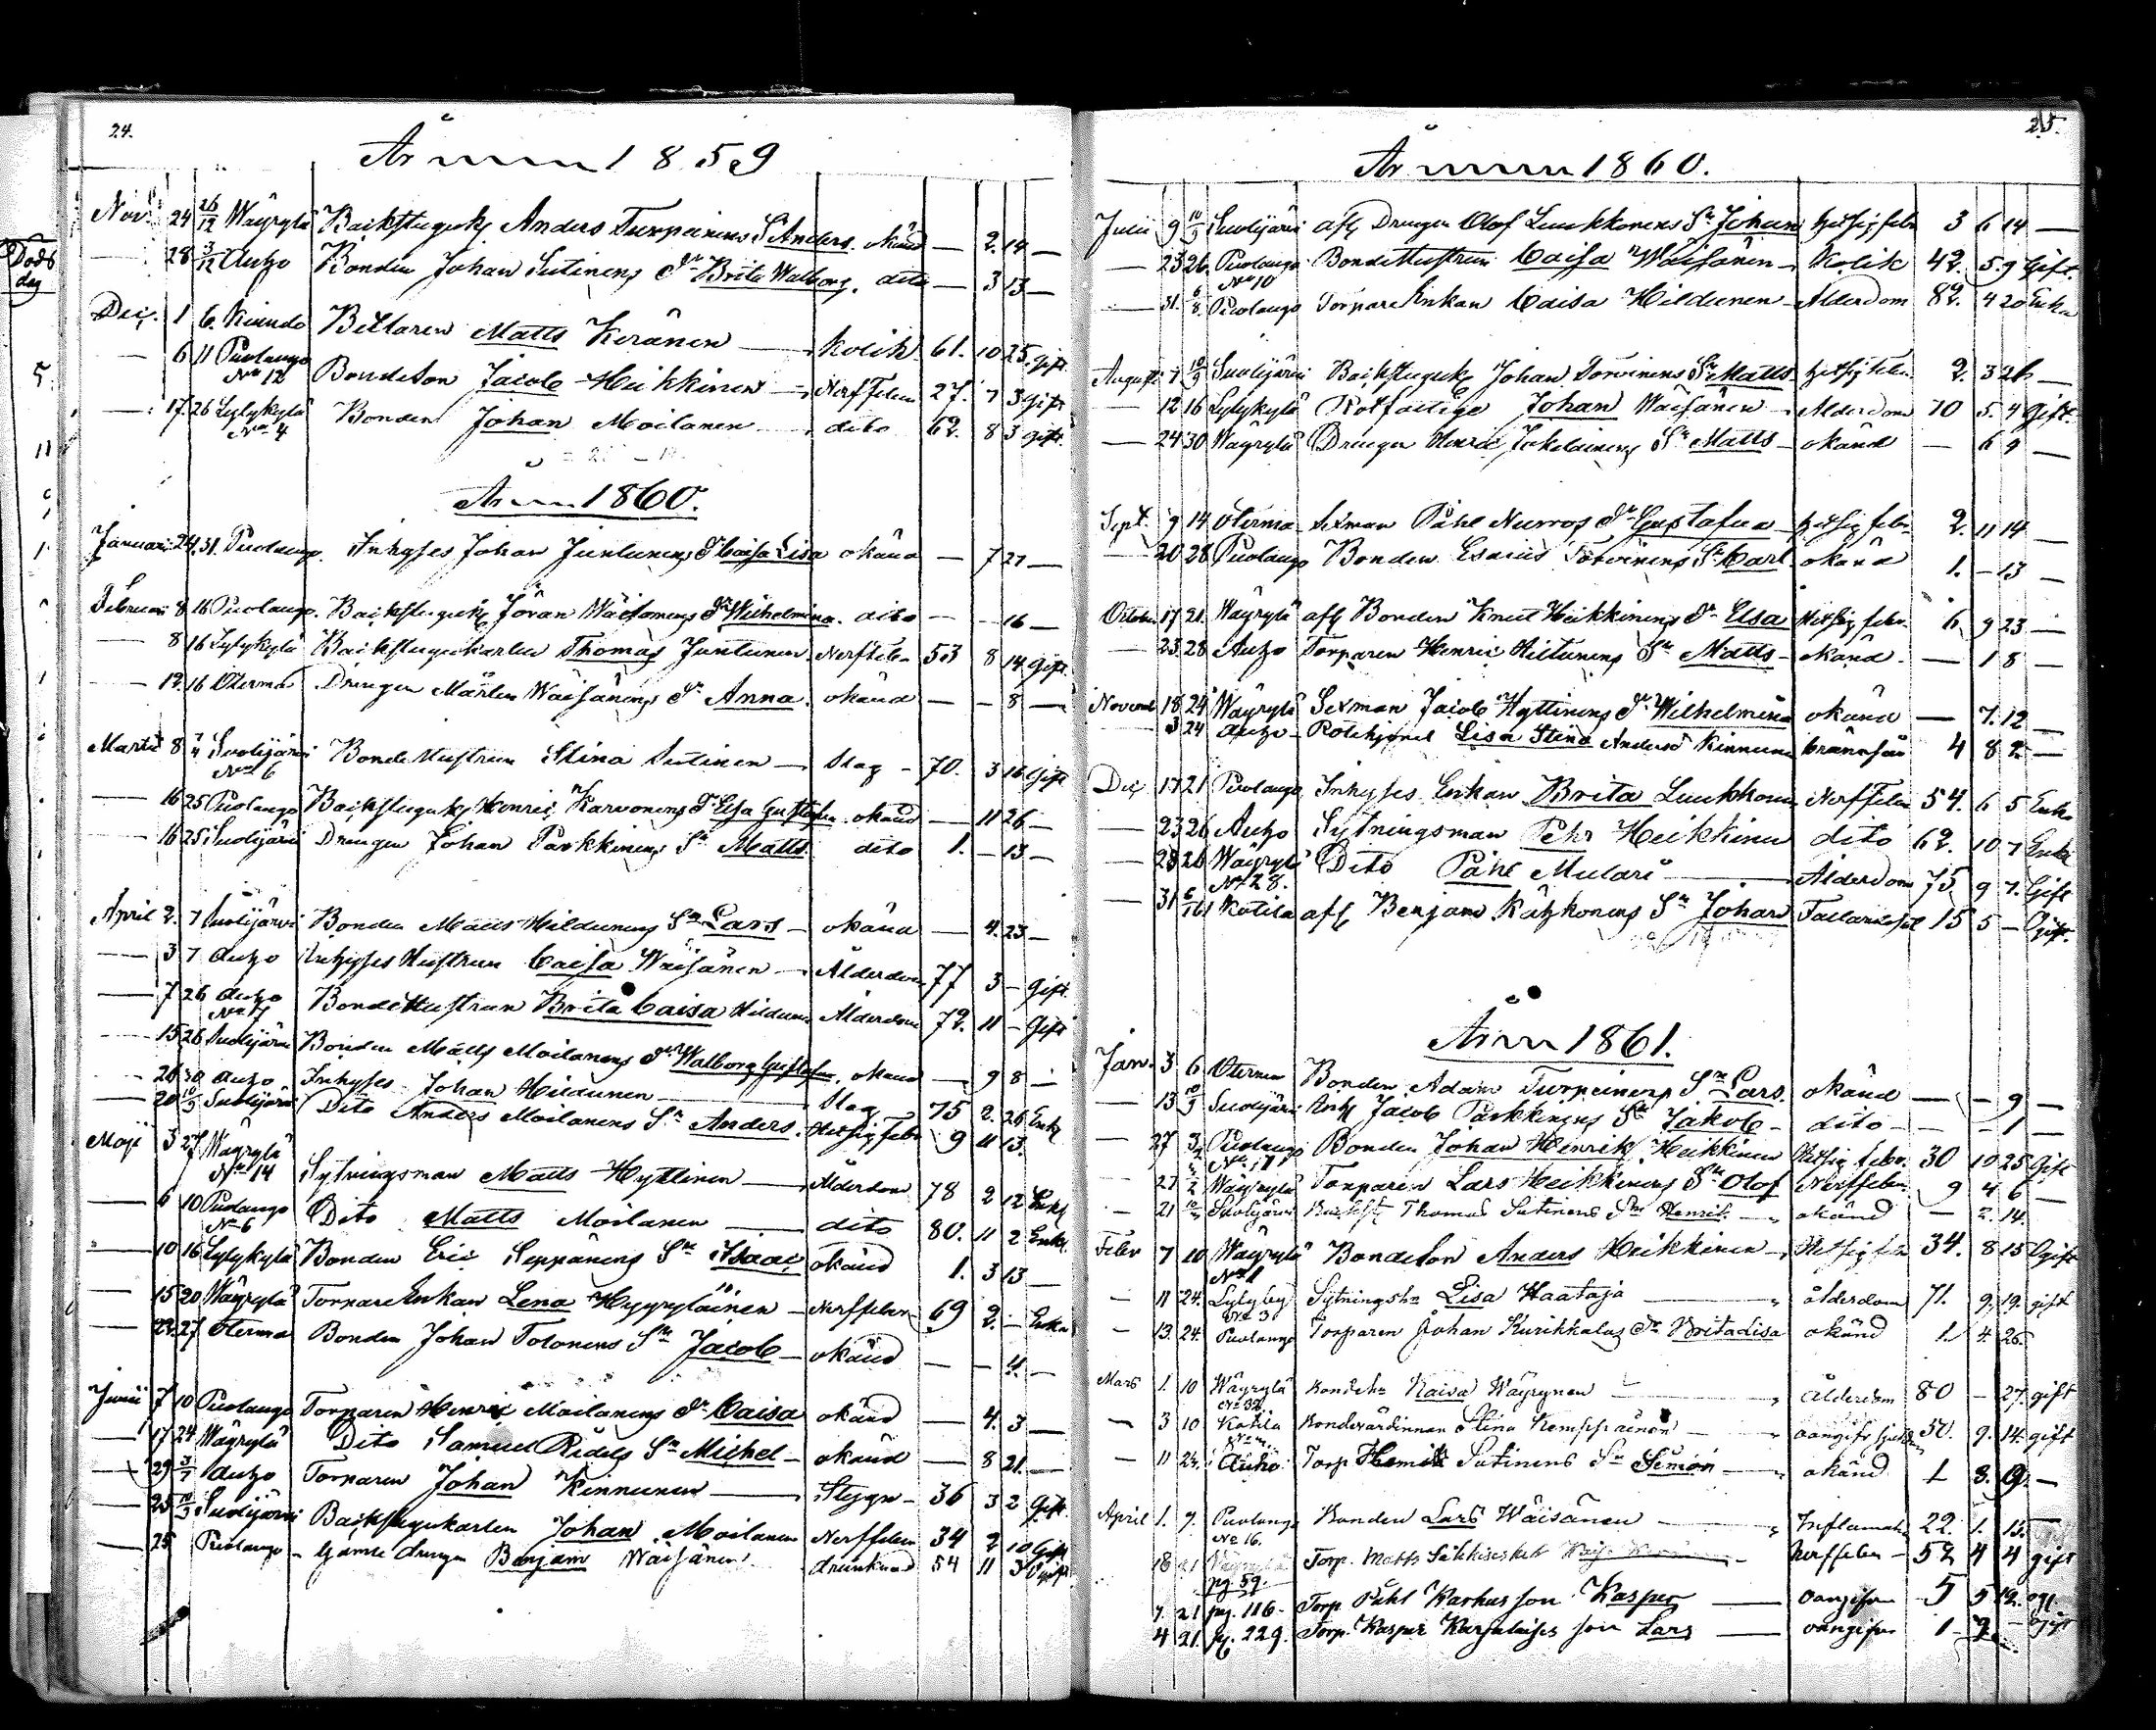 24.
År 1859
Nov. 24 26/12 Wäyrylä Backstuguk. Anders Turpeinens S. Anders. okänd — 2. 14 —
— 28 3/12 Auho Bonden Johan Sutinens Dr Brita Walborg. dito — 3 13 —
Dec. 1 6. Matts Keränen — kolik 61. 10 25. Gift
— 6 11 Puolango Bondeson Jacob Heikkinen — Nerffeber 27. 7 3 Gift
No 12
— 17 26 Lylykylä Bonden Johan Moilanen — dito 62. 8 3 gift.
No 4
År 1860.
Januari 24 31. Puolango. Inhyses Johan Juntunens Dr Caisa Lisa okänd — 7 27 —
Februari 8 16 Puolango. Backstuguk. Göran Wäisänens Dr Wilhelmina. dito — — 16 —
— 8 16 Lylykylä Backstugukarlen Thomas Juntunen Nerffeber 53 8 14. Gift.
— 12 16 Oterma Drängen Mårten Wäisänens Dr Anna. okänd — — 8 —
Martii 8 7/4 Suolijärvi Bonde Hustrun Stina Sutinen — Slag — 70. 3 16 Gift
No 6
— 16 25 Puolango Backstuguk. Henric Karvonens Dr Elsa Gustafva. okänd — 11 26 —
— 16 25 Suolijärvi Drängen Johan Parkkinens Sn Matts dito 1. — 13 —
April 2. 7 Suolijärvi Bonden Matts Hildunens Sn Lars — okänd — 4. 23 —
— 3 7 Auho Inhyses Hustrun Caisa Wäisänen — Ålderdom 77 3 — gift.
— 7 26 Auho BondeHustrun Brita Caisa Ålderdom 72. 11 — Gift
— 15 26 Suolijärvi Bonden Matts Moilanens Dr Walborg Gustafva. okänd — 9 8 —
— 26 30 Auho Inhyses Johan Hildunen — Slag 75 2. 26 Enkl
— 20 10/5 Suolijärvi Dito Anders Moilanens Sn Anders. Hetsig feber 9 11 13.
Maji 3 27 Wäyrylä Sytningsman Matts Hyttinen — Ålderdom 78 2 12 Enkl
No 14
— 6 10 Puolango Dito Matts Moilanen — dito 80. 11 2 Enkl.
No 6
— 10 16 Lylykylä Bonden Eric Seppänens Sn Isaac okänd 1. 3 13 —
— 15 20 Wäyrylä TorpareEnkan Lena Hyyryläinen — Nerffeber 69 2. — Enka
— 22. 27 Oterma Bonden Johan Tolonens Sn Jacob — okänd — — 4. —
Junii 7 10 Puolango Torparen Henric Moilanens Dr Caisa okänd — 4. 3 —
17 24 Wäyrylä Dito Samuel Sn Michel — okänd — 8 21. —
29 3/7 Auho Torparen Johan Kinnunen — 36 3 2 Gift.
25 Suolijärvi Backstugukarlen Johan Moilanen Nerffeber 34 2 10 Gift
25 Puolango — Gamle drengen Benjam Wäisänen drunknad 54 11 3
25.
År 1860.
Julii 9 Suolijärvi afl. Drängen Olof Luukkonens Sn Johan hetsig feber 3 6 14 —
— 23 26. Puolango BondeHustrun Caisa Wäisänen — Kolik 42. 5. 9 Gift.
No 10
— 31. 6/8 Puolango TorpareEnkan Caisa Hildunen — Ålderdom 82. 4 20 Enka
Augusti 7 Suolijärvi Backstuguk. Johan Torvinens Sn Matts hetsig feber. 2. 3 26 —
— 12 16 Lylykylä Rotfattige Johan Wäisänen — Ålderdom 70 5. 4 Gift.
— 24 30 Wäyrylä Drängen Henric Jokelainens Sn Matts — okänd — 6 9 —
Sept. 9 14 Oterma Sexman Påhl Nurros Dr Gustafva — hetsig feber 2. 11 14 —
— 20 28 Puolango Bonden Esaias Torvinens Sn Carl okänd 1. — 13 —
October 17 21. Wäyrylä afl. Bonden Knut Heikkinens Dr Elsa Hetsig feber. 6 9 23 —
— 23 28 Auho Torparen Henric Hiltunens Sn Matts — okänd — 1 8 —
Novemb 18 24 Wäyrylä Sexman Jacob Hyttinens Dr Wilhelmina okänd — 7. 12 —
— 3 24 Auho — Rotehjonet Lisa Stina Andersd Kinnunen brännsår 4 8 2 —
Dec. 17 21 Puolango Inhyses Enkan Brita Luukkonen Nerffeber 54. 6 5 Enka
— 23 26 Auho Sytningsman Pehr Heikkinen dito 62. 10 7 Enkl
— 23 26 Wäyrylä Dito Påhl Mulari — Ålderdom 75. 9 7. Gift
No 28.
— 31 Kotila afl. Benjam Sn Johan 15 5 — Ogift.
År 1861.
Jan. 3 6 Oterma Bonden Adam Turpeinens Sn Lars. okänd — — 9 —
— 13 Suolijärvi Inh. Jacob Parkkinens Sn Jakob — dito — — 1 —
— 27 Puolango Bonden Johan Henrik Heikkinen Hetsig feber. 30 10 25 Gift
— 27 Wäyrylä Torparen Lars Heikkinens Sn Olof Nerffeber 9 4 6 —
— 21 Suolijärvi Backst. Thomas Sutinens Sn Henrik — okänd — 2. 14.
Febr 7 10 Wäyrylä Bondeson Anders Heikkinen — Hetsig feber 34. 8 15 Ogift
No 1
— 11 24. Lylyby Sytningsh. Lisa Haataja — ålderdom 71. 9. 19. gift
No 3
— 13. 24. Puolango Torparen Johan Kurikkalas Dr Brita Lisa okänd 1. 4. 26.
Mars 1. 10 Wäyrylä Kaisa Wäyrynen — Ålderdom 80 — 27. gift
No 32
— 3 10 Kotila Bondevärdinnan Stina Kemppainen — oangifv. 50. 9. 14. gift
— 11 24. Auho. Torp Henrik Sutinens Sn Simon — okänd 1 3. 9. —
April 1. 7. Puolango Bonden Lars Wäisänen — Inflamat. 22. 1. 13.
No 16.
18 21 Torp. Matts Nerffeber — 52 4 4 gift
pg 59.
7. 21 pg. 116 — Torp Påhl Karhus son Kasper — oangifven 5 5 12. ogi.
4 21. pg. 229. Torp. Kasper son Lars — oangifven 1 — 9 — ogift
Döds
dag